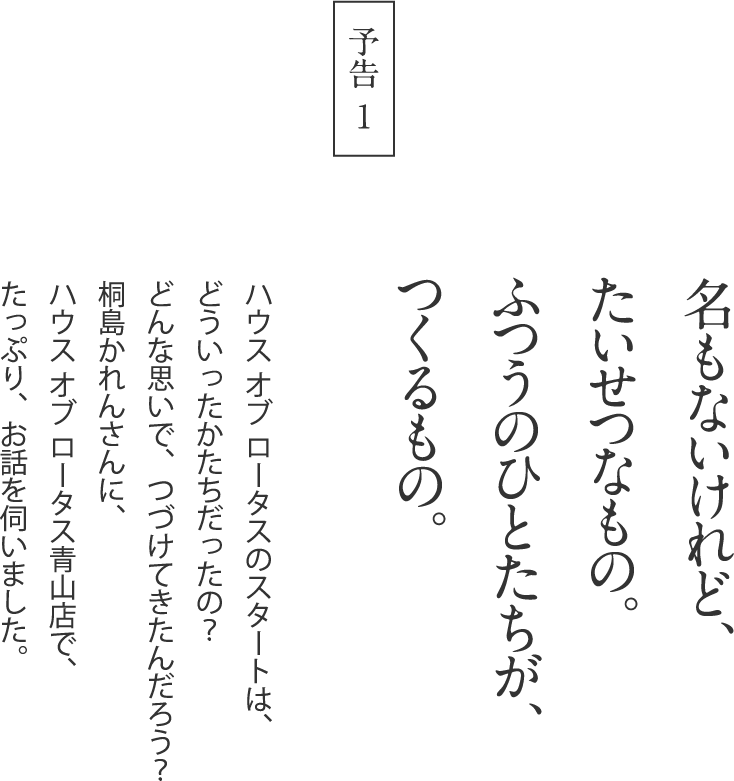 予告 1
名もないけれど、
たいせつなもの。
ふつうのひとたちが、
つくるもの。
ハウス オブ ロータスのスタートは、
どういったかたちだったの？
どんな思いで、つづけてきたんだろう？
桐島かれんさんに、
ハウス オブ ロータス青山店で、
たっぷり、お話を伺いました。